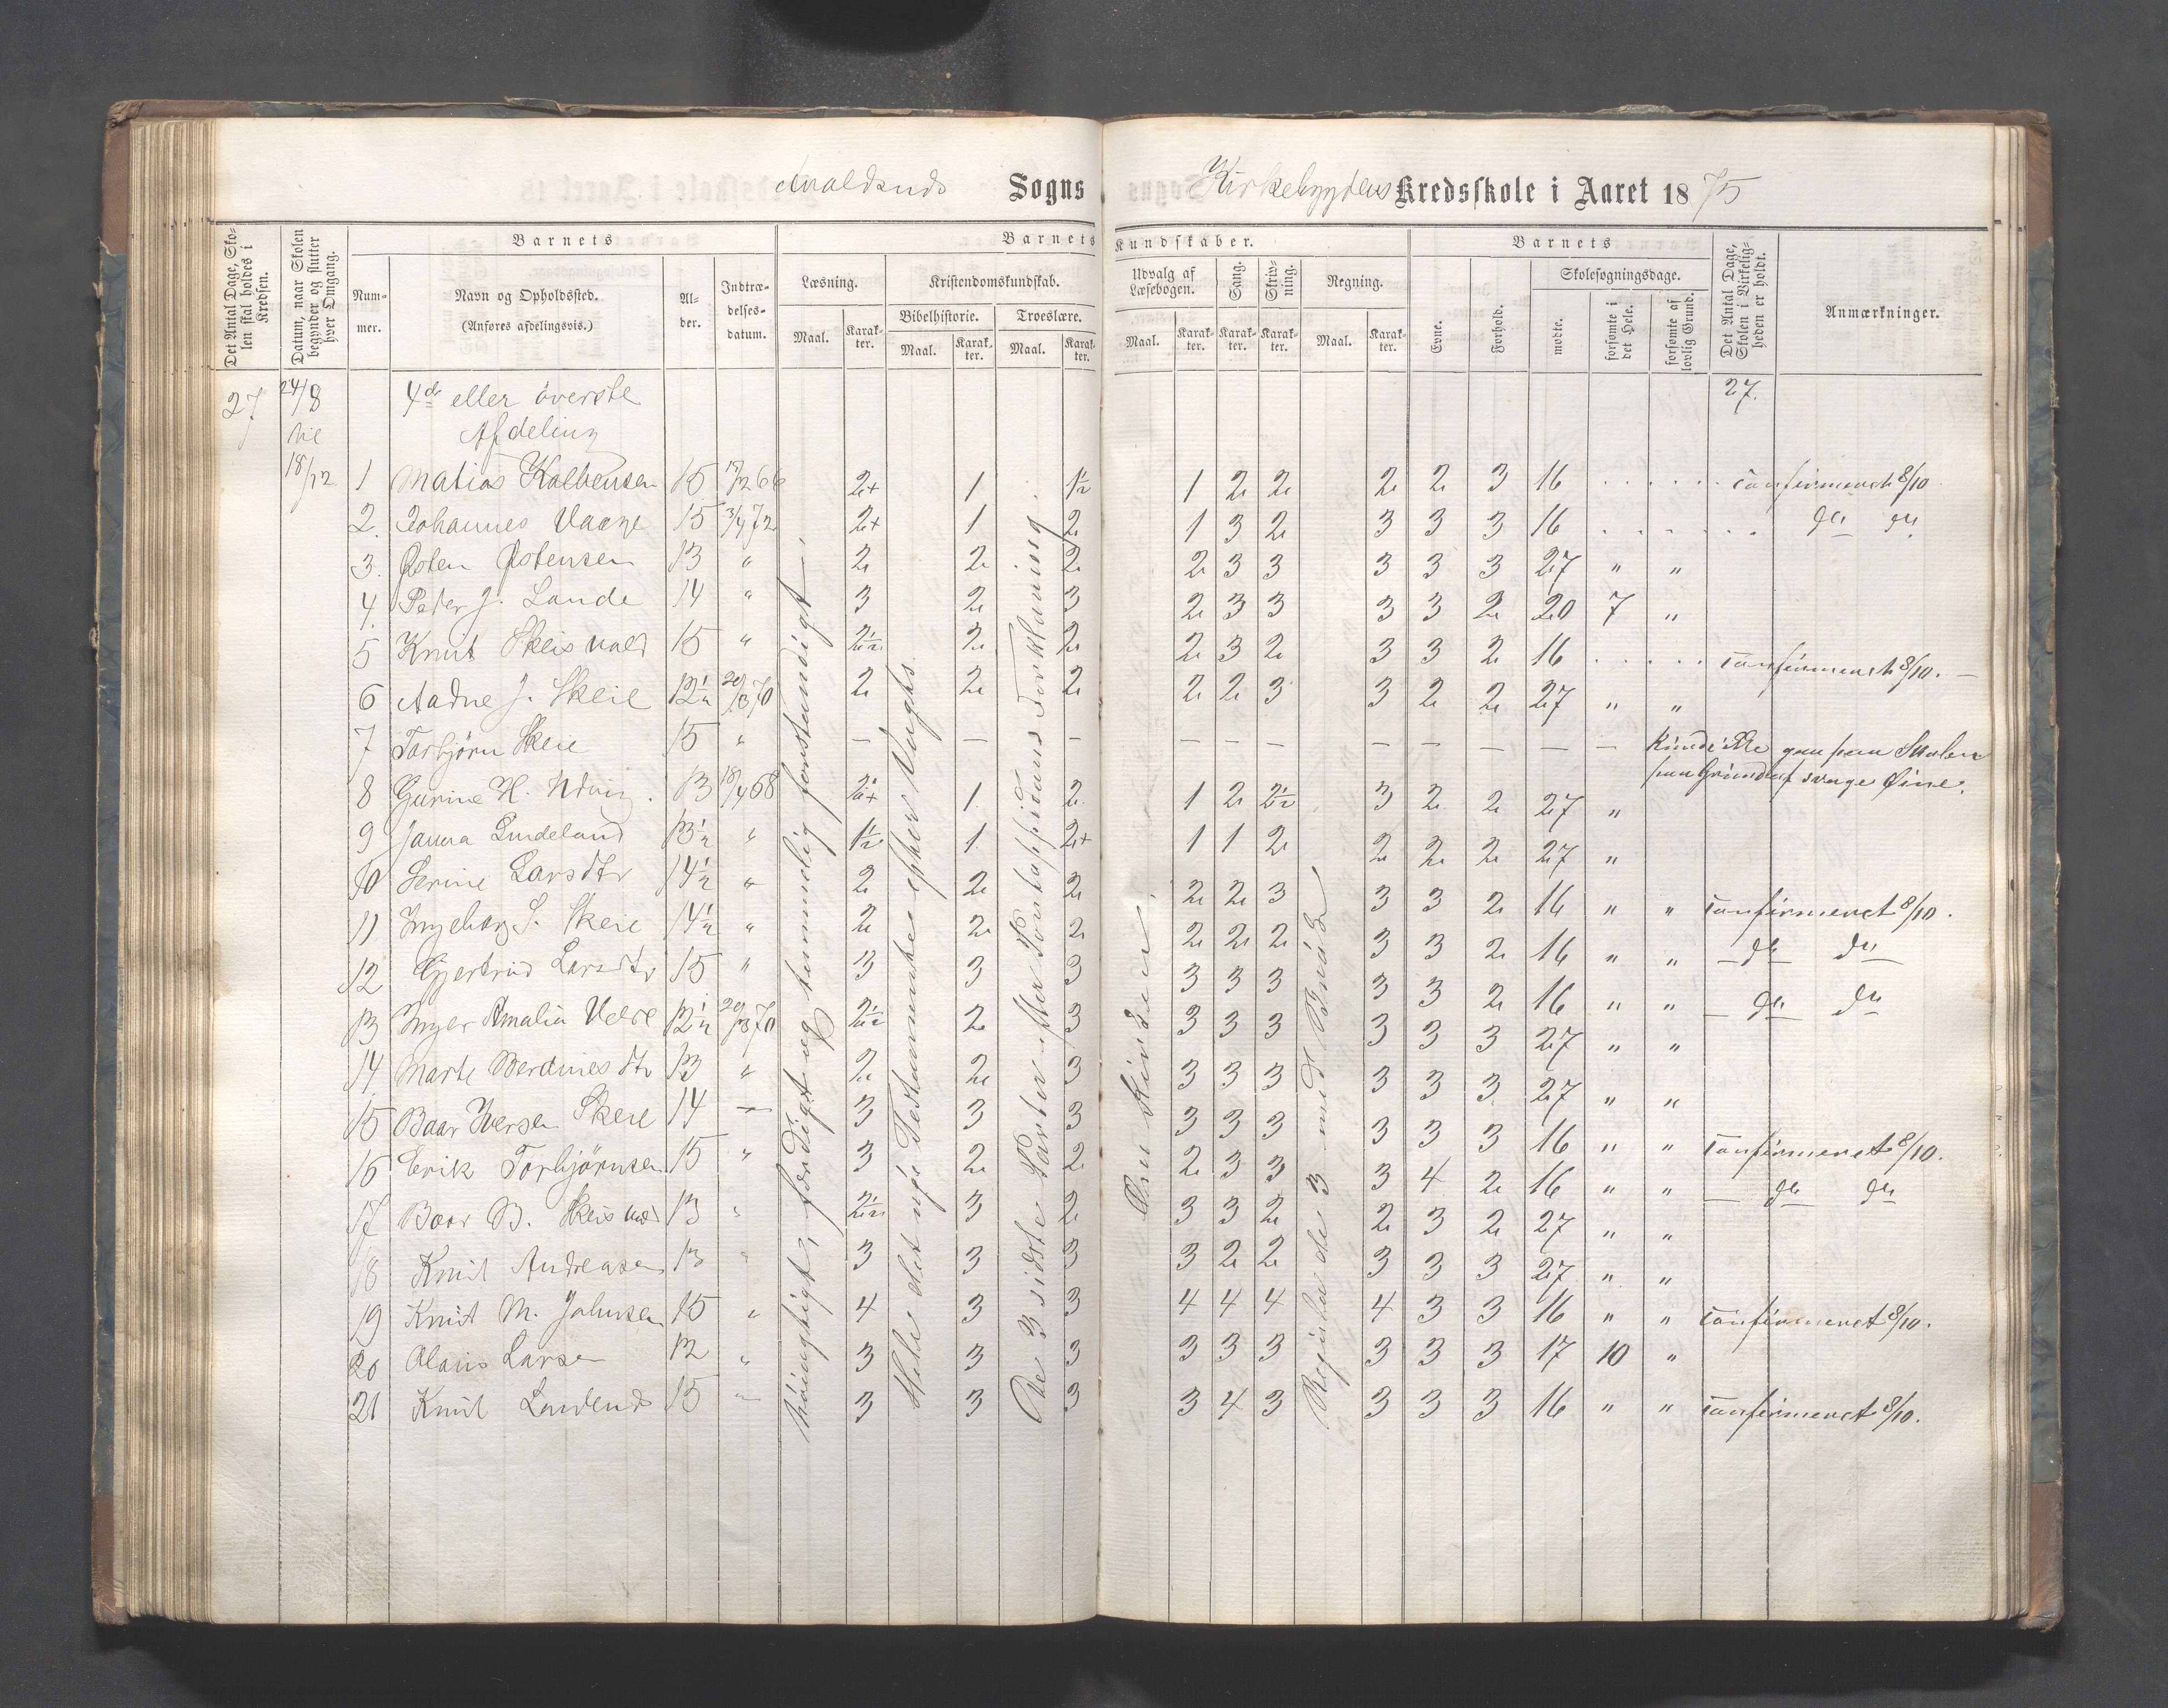 Avaldsnds Sogns Kirkebygdens Kredsskole i Aaret 1875
Det Antal Dage, Skolen skal holdes i Kredsen.
Datum, naar Skolen begynder og slutter hver Omgang.
Barnets
Nummer.
Navn og Opholdssted.
(Anføres afdelingsvis.)
Alder.
Indtrædelsesdatum.
Barnets Kundskaber.
Læsning.
Maal. Karakter.
Kristendomskundskab.
Bibelhistorie. Troeslære.
Maal. Karakter. Maal. Karakter.
Udvalg af Læsebogen.
Maal. Karakter.
Sang. Karakter.
Skrivning. Karakter.
Regning.
Maal. Karakter.
Barnets
Evne. Forhold.
Skolesøgningsdage.
mødte. forsømte i det Hele. forsømte af lovlig Grund.
Det Antal Dage, Skolen i Virkeligheden er holdt.
Anmærkninger.
27 24/8 4de eller øverste 27.
til Afdeling
18/12 1 Matias Kolbensen 15 2+ 1 1½ 1 2 2 2 2 3 16 confirmeret 8/10
2. Johannes Vaage 15 3/4 72 2+ 1 2 1 3 2 3 3 3 16 do do
3. Østen Østensen 13 " 2 2 2 2 3 3 3 3 3 27 " "
4. Peter J. Lande 14 " 3 2 3 2 3 3 3 3 2 20 7 "
5 Knut Skeisvold 15 " 2½ 2 2 2 3 2 3 3 2 16 confirmeret 8/10.
6 Aadne J. Skeie 12½ 20/3 70 2 2 2 2 2 3 3 2 2 27 " "
7 Torbjørn Skeie 15 " — — — — — — — — — — — Kunde ikke gaa paa Skolen
paa Grund af svage Øine.
8 Gurine H. Utvig. 13 18/4 68 2+ 1 2 1 2 2½ 3 2 2 27 "
9 Janna Lindeland 13½ " 1½ 1 2+ 1 1 2 2 2 2 27 "
10 Serine Larsdtr 14½ " 2 2 2 2 2 3 3 3 2 16 " " confirmeret 8/10.
11 Ingeborg S. Skeie 14½ " 2 2 2 2 2 2 3 3 2 16 " " — do do
12 Gjertrud Larsdtr 15 " 3 3 3 3 3 3 3 3 2 16 " " — do do
13 Inger Amalia Velde 12½ 20/3 70 2½ 2 3 3 3 3 3 3 3 27 " "
14 Marte Berdinesdtr 13 " 2 2 3 3 3 3 3 3 3 27 " "
15 Baar Iversen Skeie 14 — 3 3 3 3 3 3 3 3 3 16 " " confirmeret 8/10.
16 Erik Torbjørnsen 15 " 3 2 2 2 3 3 3 4 2 16 " " — do do
17 Baar B. Skeisvold 13 " 2½ 3 2 3 3 2 2 3 2 27 " "
18 Knut Andreasen 13 " 3 3 3 3 2 2 3 3 3 27 " "
19 Knut M. Johnsen 15 " 4 3 3 4 4 4 4 3 3 16 " " confirmeret 8/10.
20 Olaus Larsen 12 " 3 3 3 3 3 3 3 3 3 17 10 "
21 Knut 15 — 3 3 3 3 4 3 3 3 3 16 " " confirmeret 8/10.
Nöiagtigt, færdigt og temmelig forstandigt.
Hele det nye Testamente efter Vogts.
De 3 sidste Parter efter Pontoppidans Forklaring
Regula de 3 med Bröd